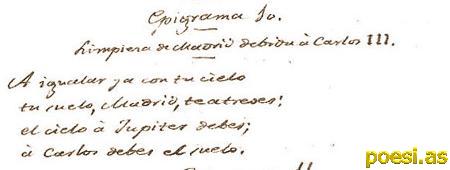 Epigrama 10.
Limpieza de Madrid debida à Carlos III.
A igualar ya con tu cielo
tu suelo, Madrid, te atreves;
el cielo à Jupiter debes;
à Carlos debes el suelo.
poesi.as